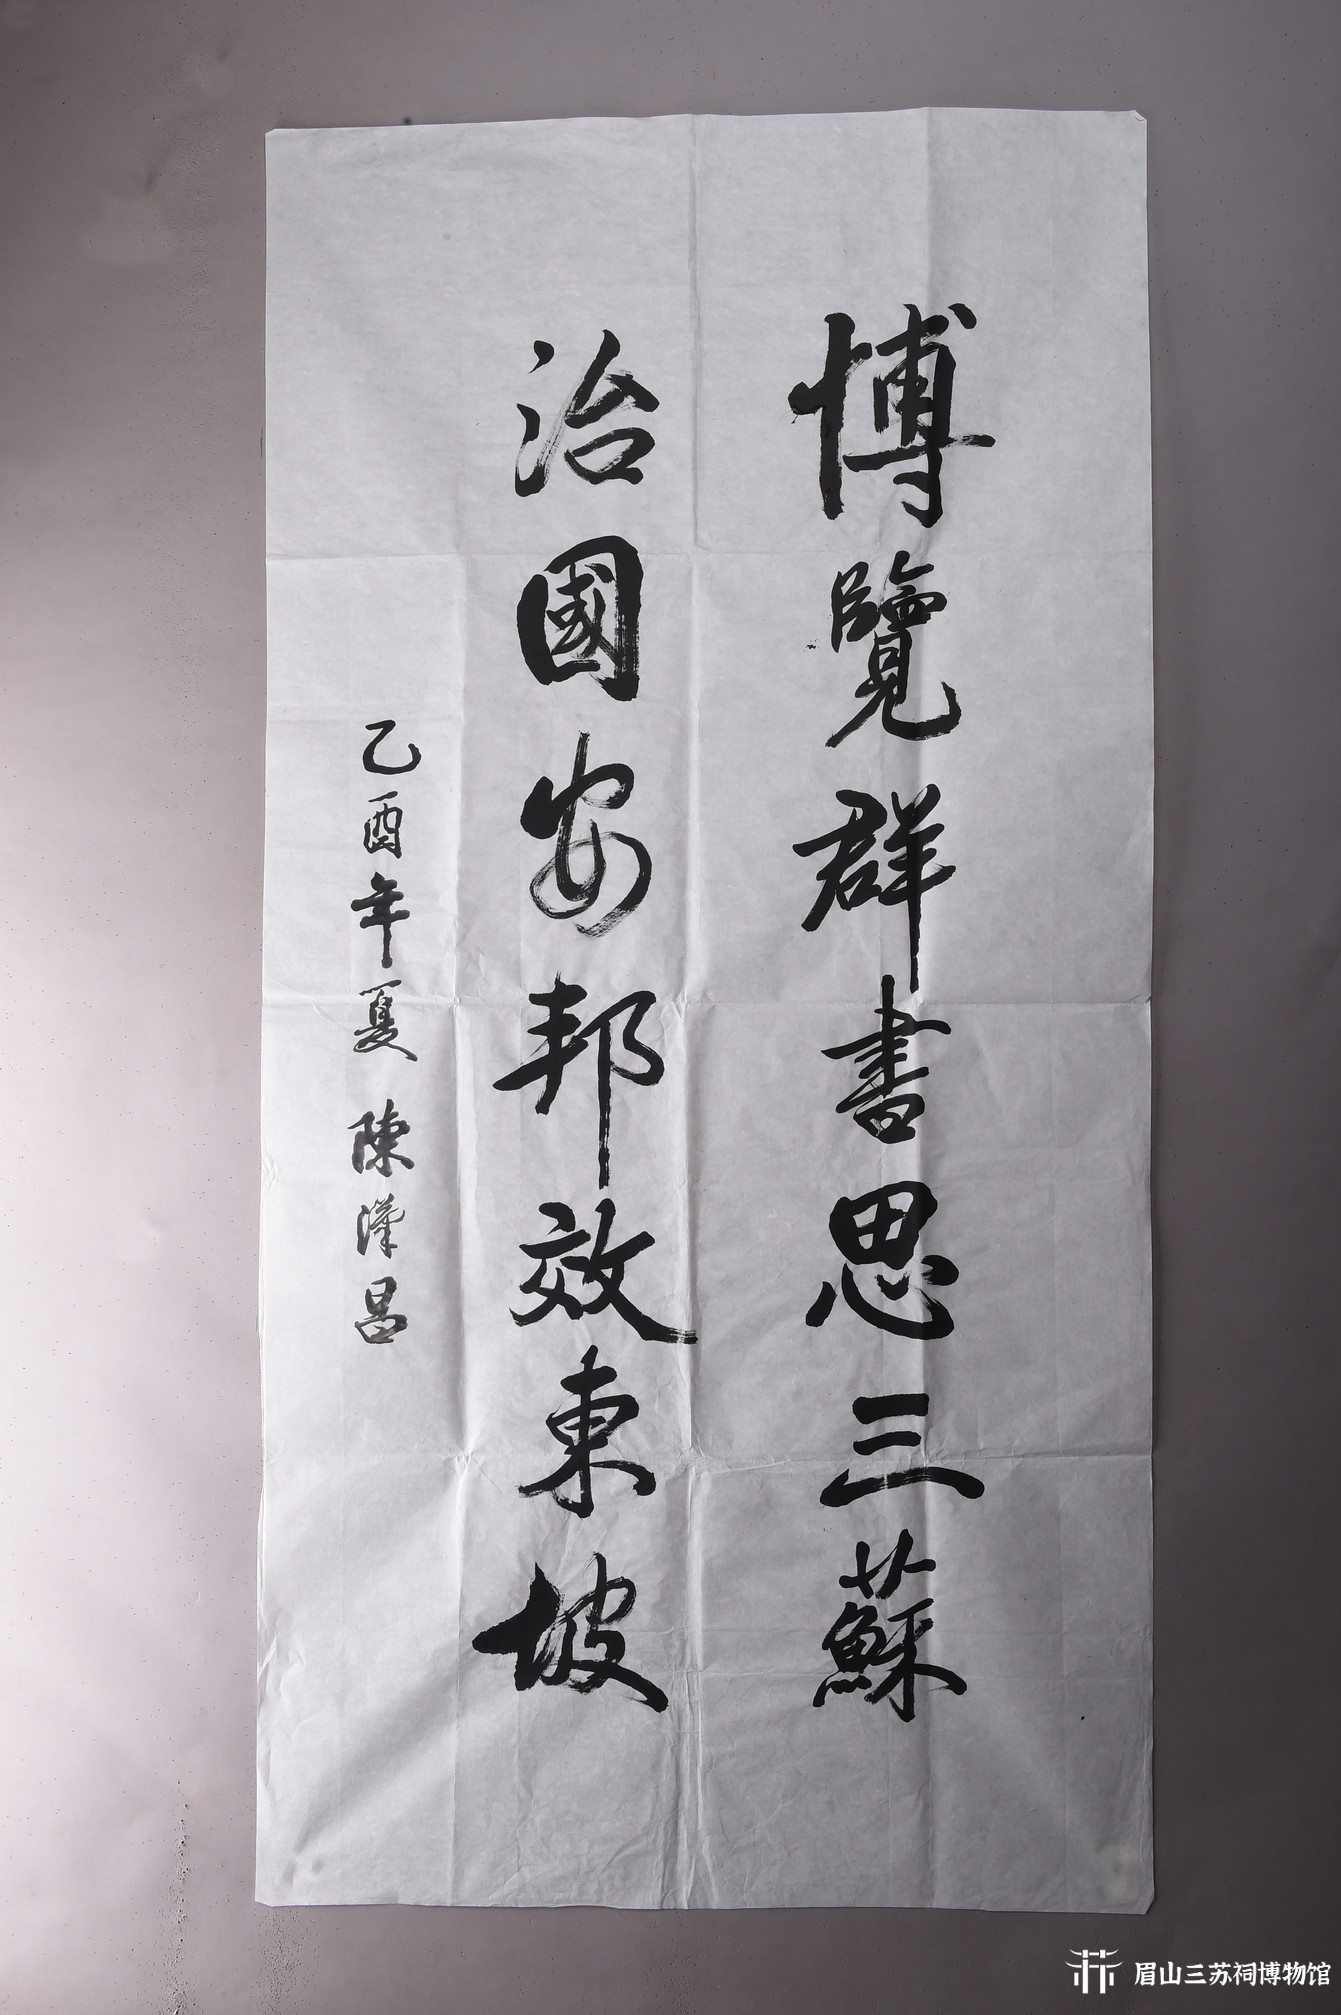 博覽群書思三蘇
治國安邦效東坡
乙酉年夏 陳漢昌
眉山三苏祠博物馆